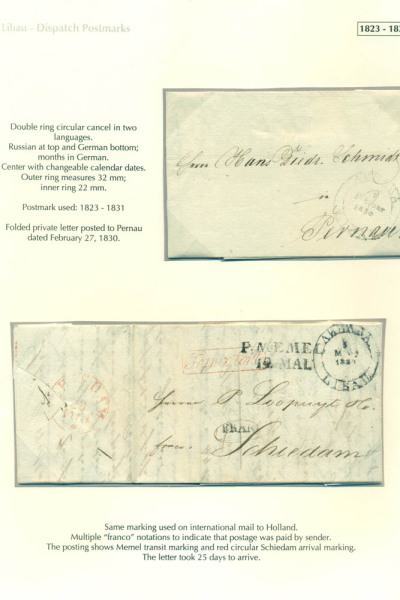 Libau - Dispatch Postmarks
1823 - 183
Double ring circular cancel in two
languages.
Russian at top and German bottom;
months in German.
Center with changeable calendar dates.
Outer ring measures 32 mm;
inner ring 22 mm.
Postmark used: 1823 - 1831
Folded private letter posted to Pernau
dated February 27, 1830.
Herrn Hans Diedr. Schmidt
in
Pernau
1830
P. MEMEL
19. MAI
LIBAU
Herrn P. Loopuyt
FRAN
Schiedam
Same marking used on international mail to Holland.
Multiple “franco” notations to indicate that postage was paid by sender.
The posting shows Memel transit marking and red circular Schiedam arrival marking.
The letter took 25 days to arrive.